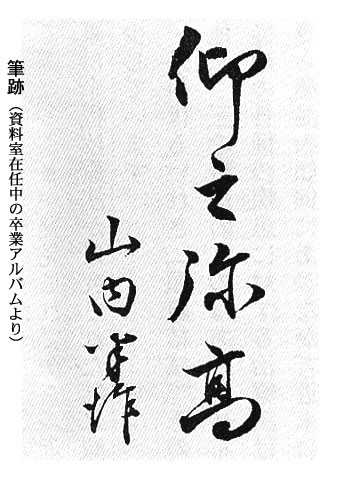 仰之弥高
山内
筆跡（資料室在任中の卒業アルバムより）